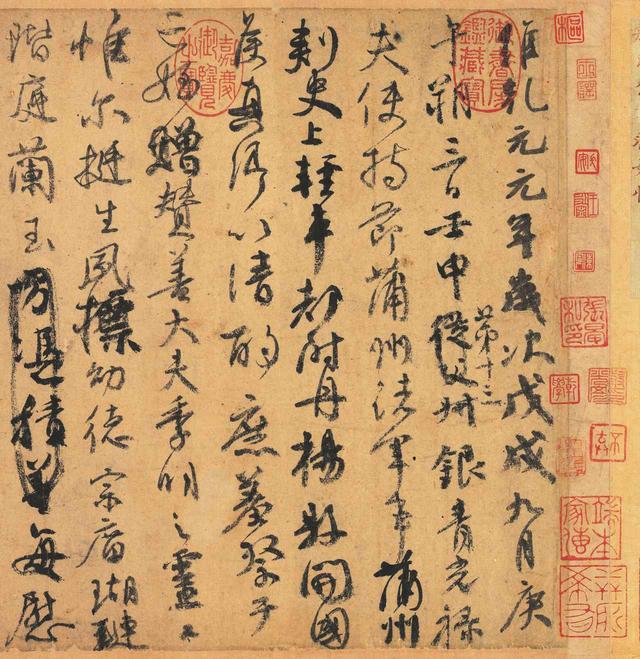 維乾元元年歲次戊戌九月庚
午朔三日壬申第十三從父叔銀青光祿
夫使持節蒲州諸軍事蒲州
刺史上輕車都尉丹楊縣開國
侯真卿以清酌庶羞祭于
亡姪贈贊善大夫季明之靈曰
惟爾挺生夙標幼德宗廟瑚璉
階庭蘭玉方憑積善每慰
御書房鑑藏寶
嘉慶御覽之寶